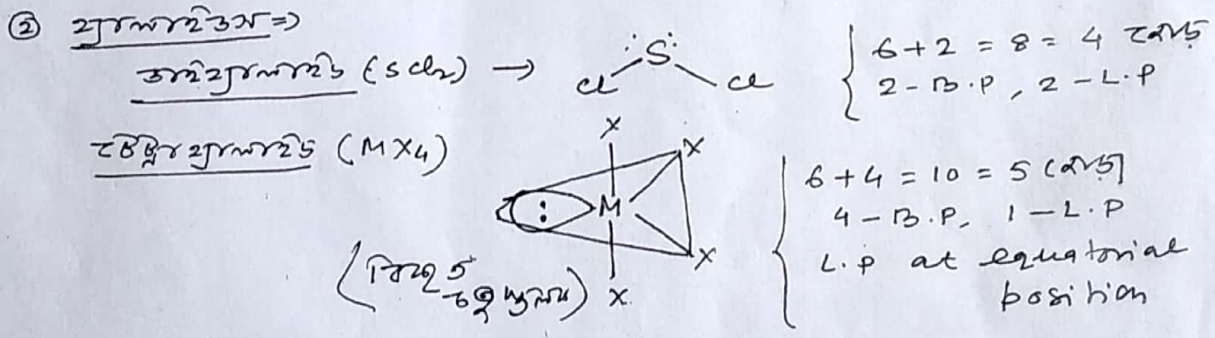 ② হ্যালাইডস =>
ডাইহ্যালাইড (SCl₂) →
:S:
Cl Cl
6+2 = 8 = 4 জোড়
2-B.P, 2-L.P
টেট্রাহ্যালাইড (MX₄)
X
X
: M
X
X
6+4 = 10 = 5 জোড়
4-B.P, 1-L.P
L.P at equatorial
position